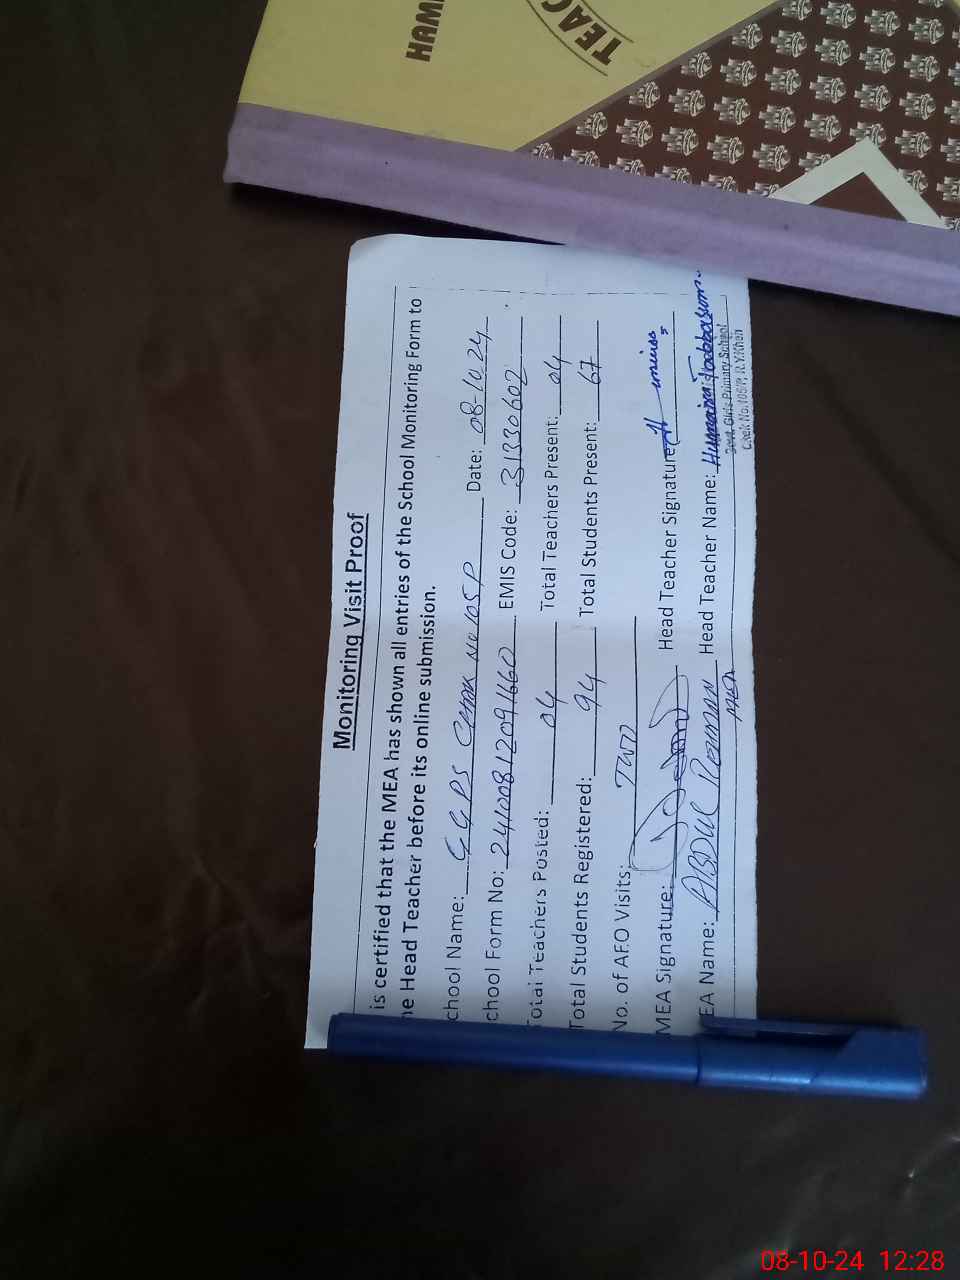 HAMI
TEAC
Monitoring Visit Proof
is certified that the MEA has shown all entries of the School Monitoring Form to
he Head Teacher before its online submission.
chool Name: GGPS CHAK No 105P Date: 08-10-24
chool Form No: 24100812091660 EMIS Code: 31330602
Total Teachers Posted: 04 Total Teachers Present: 04
Total Students Registered: 94 Total Students Present: 67
No. of AEO Visits: TWO
MEA Signature: Head Teacher Signature:
EA Name: ABDUL REHMAN Head Teacher Name: Humaira Tabbasum
MEA
Govt. Girls Primary School
Chak No.105/P, R.Y.Khan
08-10-24 12:28